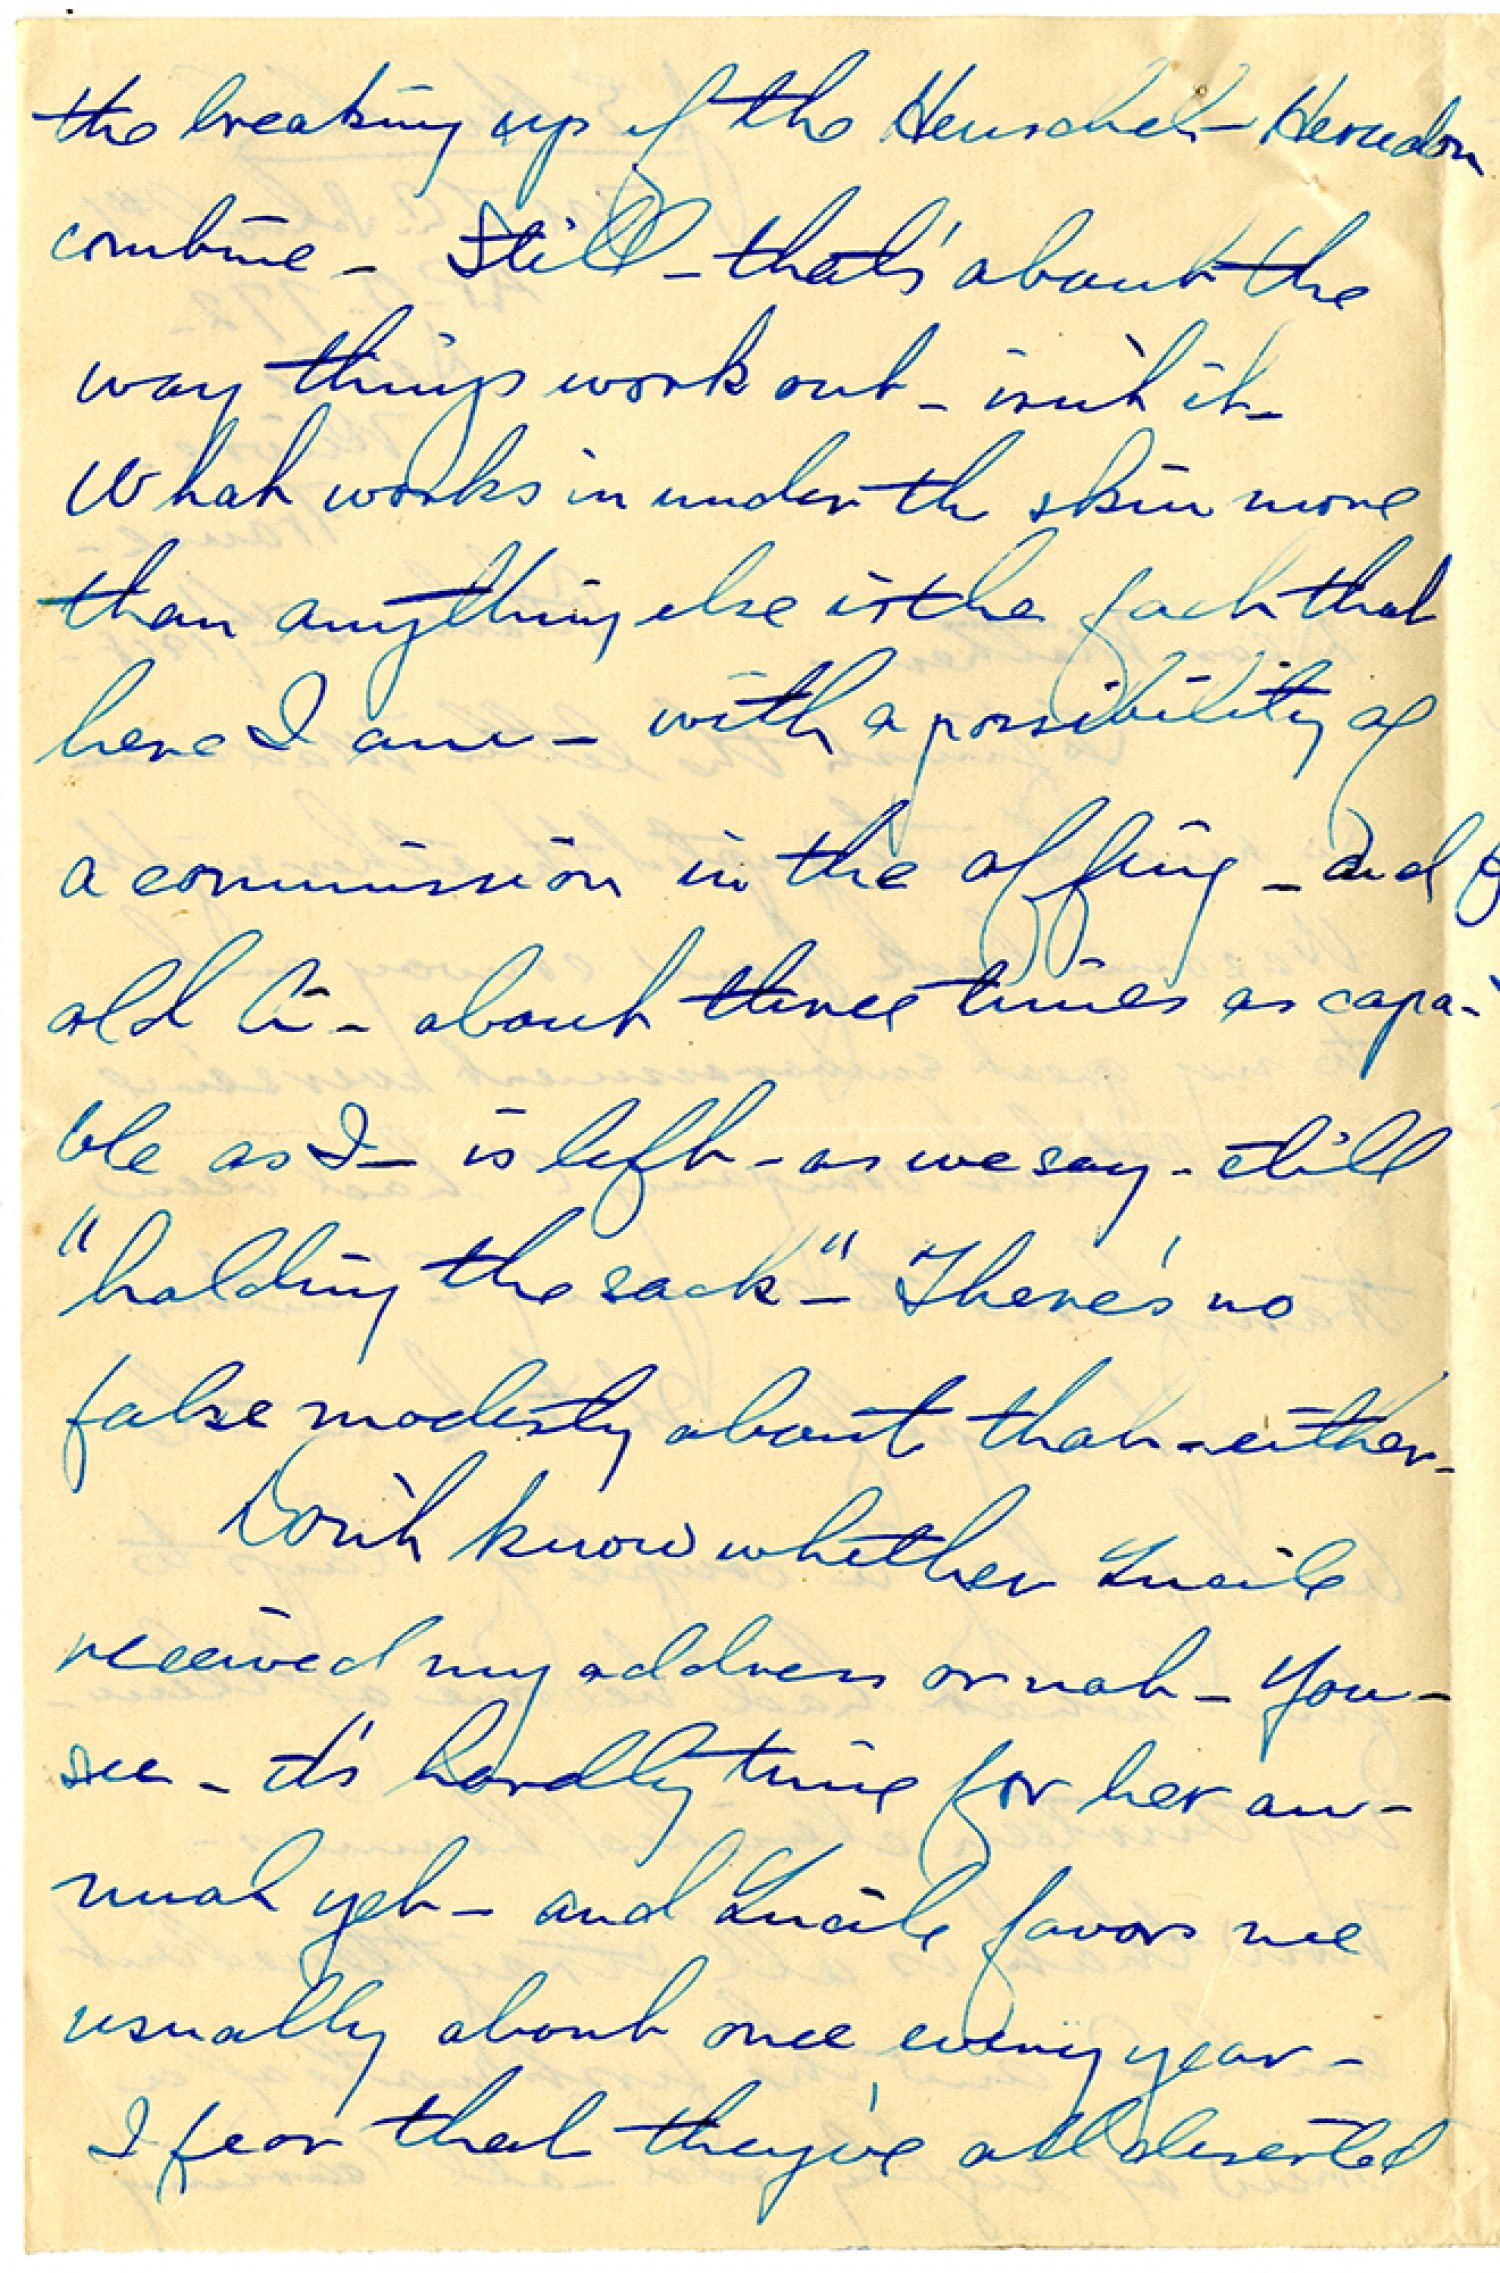 the breaking up of the Henschel-Herndon
combine - Still - that's about the
way things work out - isn't it -
What works in under th skin more
than anything else is the fact that
here I am - with a possibility of
a commission in the offing - and
old - about three times as capa-
ble as I - is left - as we say - still
"holding the sack" - There's no
false modesty about that - either -
Don't know whether Lucile
received my address or not - You -
see - it's hardly time for her an-
nual yet - and Lucile favors me
usually about once every year -
I fear that they've all deserted